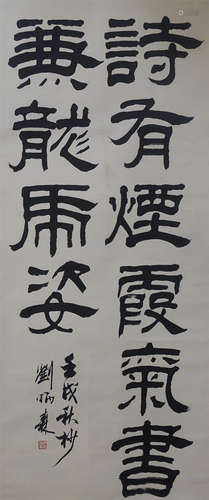 詩有煙霞氣書
兼龍虎姿
壬戌秋抄
劉炳森